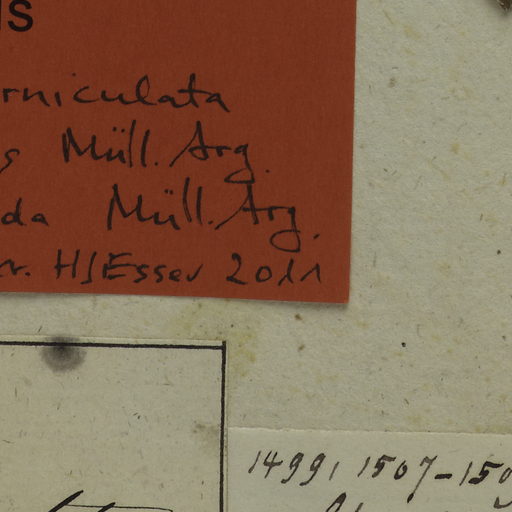 IS
rniculata
s Müll. Arg.
da Müll. Arg.
r. HJEsser 2011
1499, 1507-150